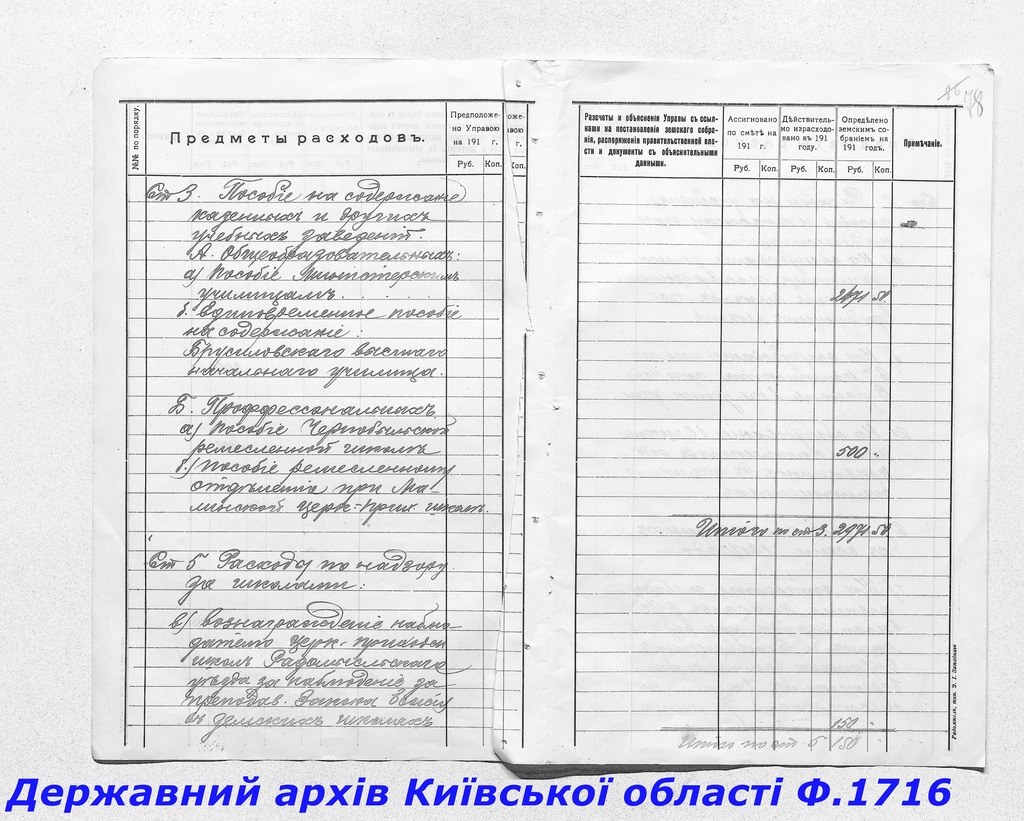 №№ по порядку.
Предметы расходовъ.
Предположе-
но Управою
на 191 г.
Руб. Коп.
Ст 3. Пособіе на содержаніе
казенныхъ и другихъ
учебныхъ заведеній.
А. Общеобразовательныхъ:
а) Пособіе Министерскимъ
училищамъ. . . . . .
б. единовременное пособіе
на содержаніе:
Брусиловскаго высшаго
начальнаго училища.
Б. Профессональныхъ
а) Пособіе Чернобыльской
ремесленной школѣ
б.) пособіе ремесленному
отдѣленію при Ма-
линской церк-прих школѣ.
Ст 5 Расходы по надзору
за школами:
в) вознагражденіе наблю-
дателю церк-приходск
школъ Радомысльскаго
уѣзда за наблюденіе за
преподав. Закона Божія
въ земскихъ школахъ
оже-
вою
г.
Коп.
86
78
Разсчеты и объясненія Управы съ ссыл-
ками на постановленія земскаго собра-
нія, распоряженія правительственной вла-
сти и документы съ объяснительными
данными.
Ассигновано
по смѣтѣ на
191 г.
Руб. Коп.
Дѣйствитель-
но израсходо-
вано въ 191
году.
Руб. Коп.
Опредѣлено
земскимъ со-
браніемъ на
191 годъ.
Руб. Коп.
Примѣчаніе.
2471 50
500 "
Итого по ст 3. 2971 50
150 "
Итого по ст 5 150
Державний архів Київської області Ф.1716